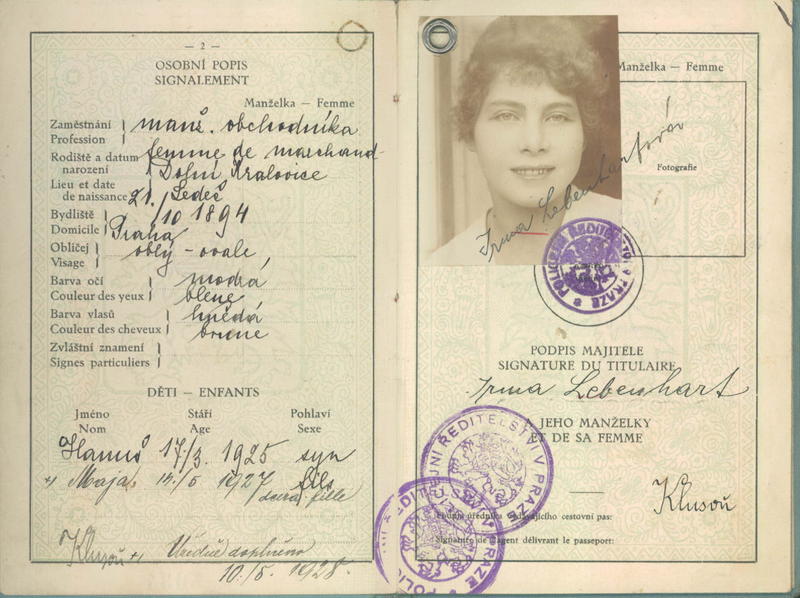 — 2 —
OSOBNÍ POPIS
SIGNALEMENT
Manželka — Femme
Zaměstnání
Profession
manž. obchodníka
femme de marchand
Rodiště a datum narození
Lieu et date de naissance
Dolní Kralovice
21./10 1894
Bydliště
Domicile
Praha
Obličej
Visage
oblý - ovale
Barva očí
Couleur des yeux
modrá
bleue
Barva vlasů
Couleur des cheveux
hnědá
brune
Zvláštní znamení
Signes particuliers
DĚTI — ENFANTS
Jméno Stáří Pohlaví
Nom Age Sexe
Hanuš 17/3. 1925 syn
fils
+) Maja 1927 dcera fille
Klusoň +) Úředně doplněno
10./5. 1928.
Manželka — Femme
Fotografie
Irma Lebenhartová
POLICEJNÍ ŘEDITELSTVÍ V PRAZE
PODPIS MAJITELE
SIGNATURE DU TITULAIRE
Irma Lebenhart
JEHO MANŽELKY
ET DE SA FEMME
Klusoň
POLICEJNÍ ŘEDITELSTVÍ V PRAZE
Podpis úředníka vydávajícího cestovní pas:
Signature de l'agent délivrant le passeport:
POLICEJNÍ ŘEDITELSTVÍ V PRAZE